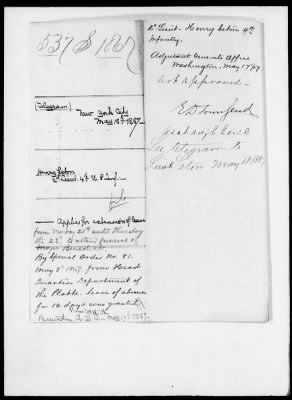 537 S 1867
(Telegram)
New York City
May 18th 1867.
Henry Seton
2d Lieut. 4th U.S. Inf.
Applies for extension of leave
from Monday 20th until Thursday
the 23d to attend funeral of
By Special Order No. 81.
May 8th 1867. from Head
Quarters Department of
the Platte. leave of absence
for 12 days was granted
May 17th 1867.
2d Lieut. Henry Seton 4th
Infantry.
Adjutant Generals Office
Washington, May 17/67
Not approved.
E D Townsend
See telegram to
Lieut Seton May 18.